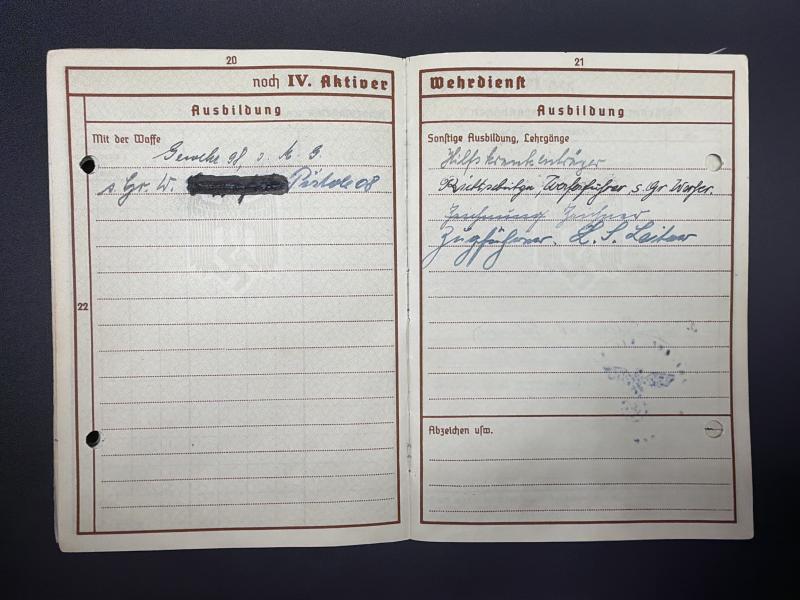 20
noch IV. Aktiver
Ausbildung
Mit der Waffe
Gewehr 98, s. M. G.
s. Gr. W. Pistole 08
22
21
Wehrdienst
Ausbildung
Sonstige Ausbildung, Lehrgänge
Hilfskrankenträger
Richtschütze, Werferführer s. Gr. Werfer.
Zugführer.
Abzeichen usw.